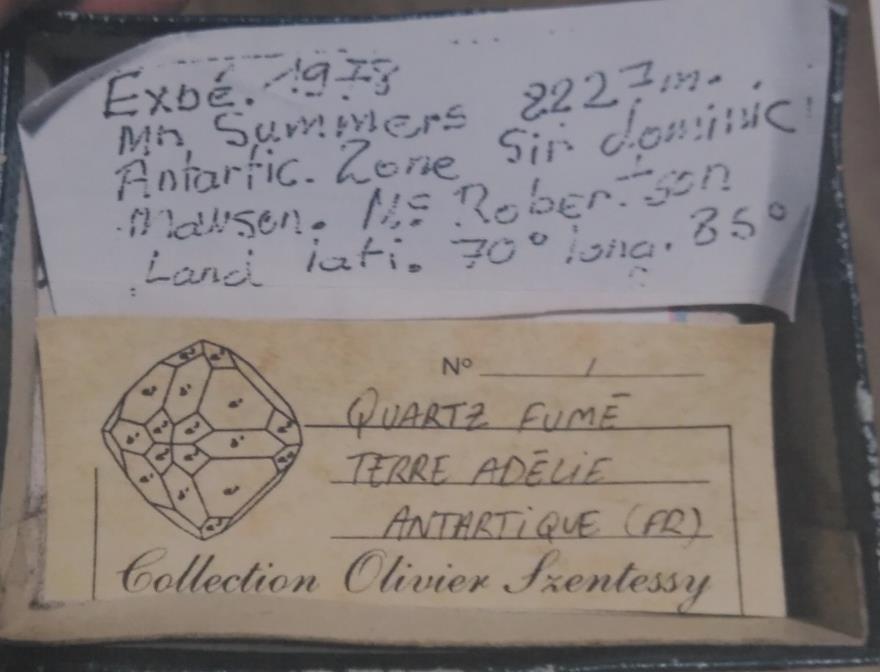 Expé. 1978
Mn Summers 2227m.
Antartic. Zone Sir dominic
Mawson. Mc Robertson
Land lati. 70° long. 65°
N° /
QUARTZ FUMÉ
TERRE ADÉLIE
ANTARTIQUE (FR)
Collection Olivier Szentessy